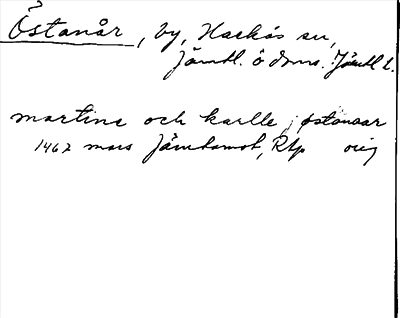 Östanår, by, Hackås sn,
Jämtl. ö doms. Jämtl l.
martine och karlle j østanaar
1467 mars Jämtamot, RAp orig